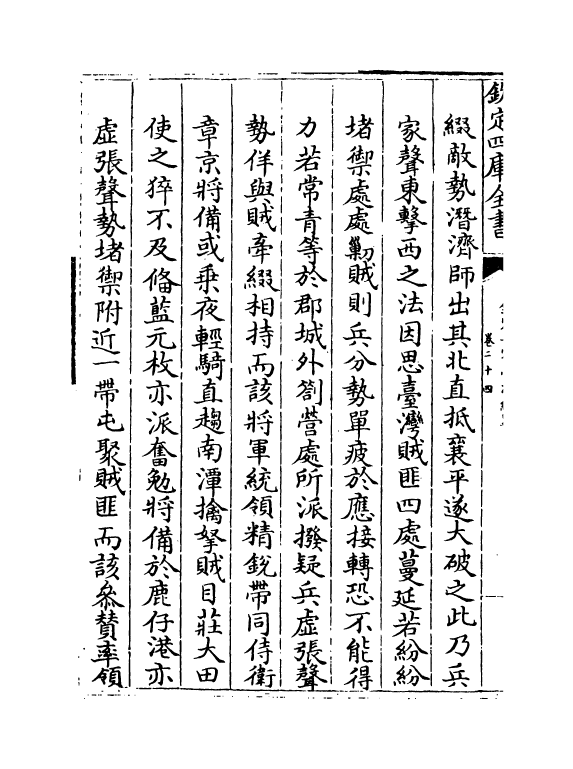 欽定四庫全書
卷二十四
綴敵勢潛濟師出其北直抵襄平遂大破之此乃兵
家聲東擊西之法因思臺灣賊匪四處蔓延若紛紛
堵禦處處勦賊則兵分勢單疲於應接轉恐不能得
力若常青等於郡城外劄營處所派撥疑兵虛張聲
勢佯與賊牽綴相持而該將軍統領精銳帶同侍衛
章京將備或乗夜輕騎直趨南潭擒拏賊目莊大田
使之猝不及偹藍元枚亦派奮勉將備於鹿仔港亦
虛張聲勢堵禦附近一帶屯聚賊匪而該叅賛率領